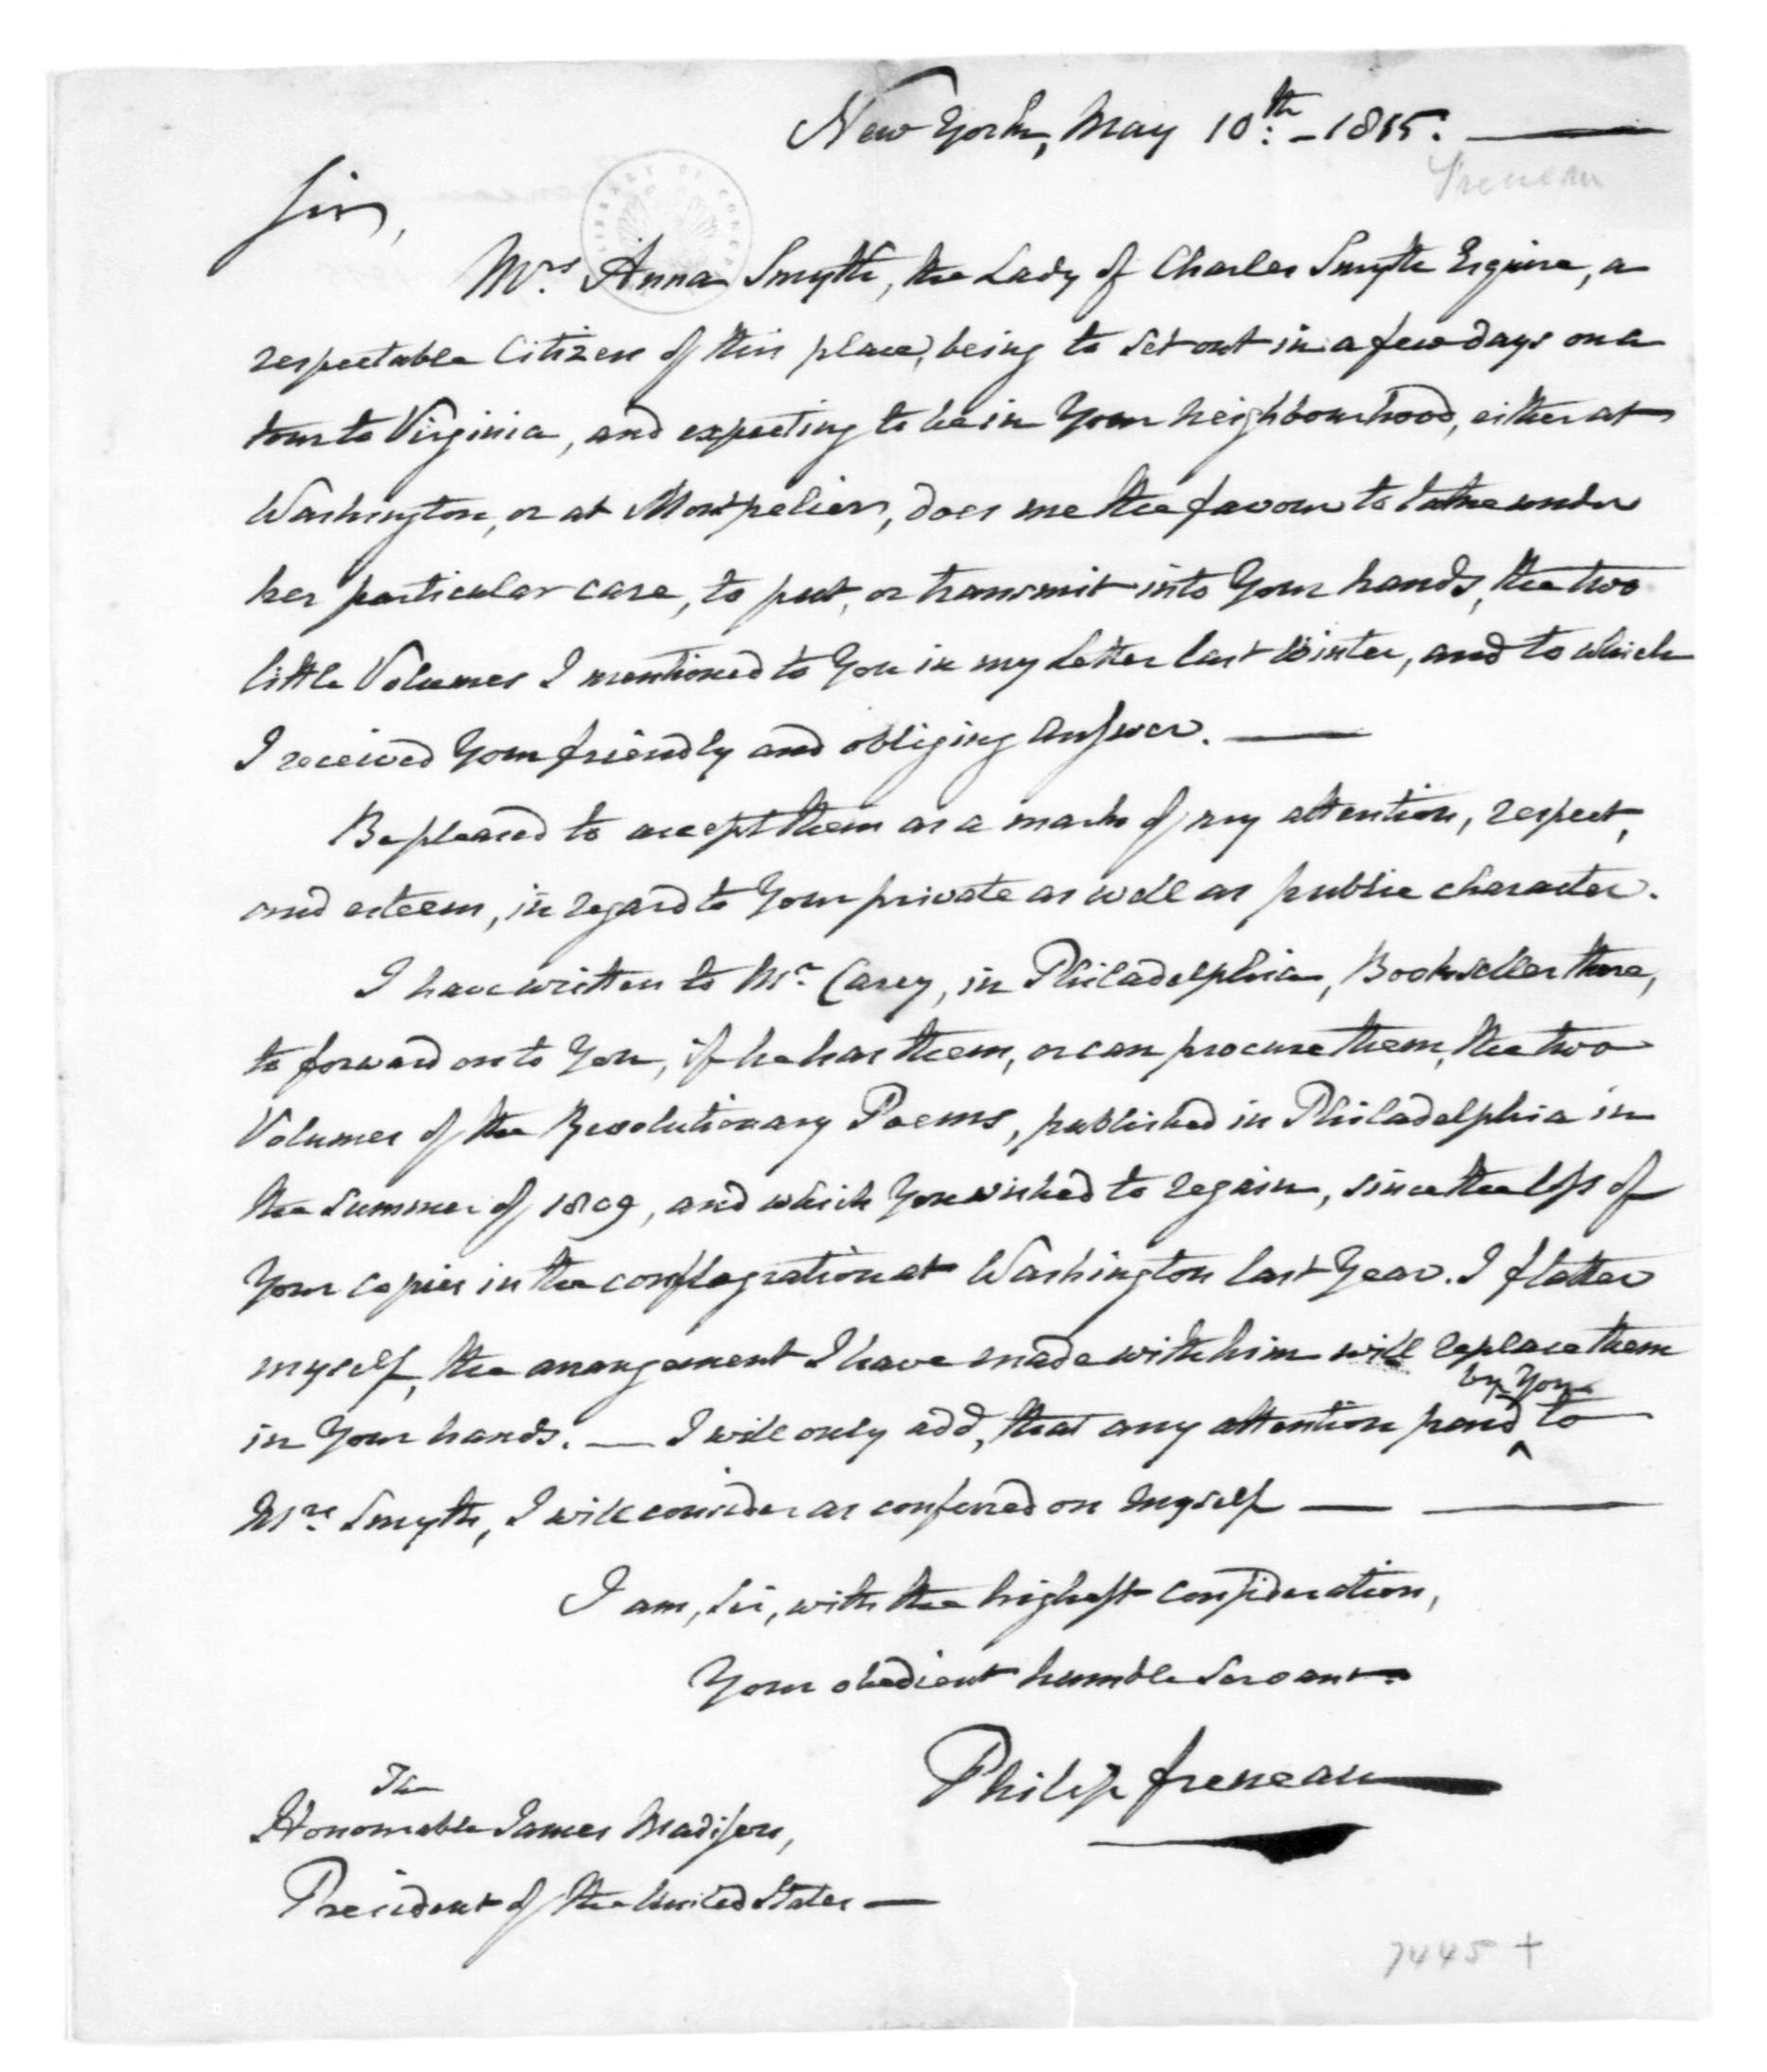 New York, May 10:th - 1815.
Freneau
Sir,
Mrs. Anna Smyth, the Lady of Charles Smyth Esquire, a
respectable Citizen of this place, being to set out in a few days on a
tour to Virginia, and expecting to be in Your neighbourhood, either at
Washington, or at Montpelier, does me the favour to take under
her particular care, to put, or transmit into Your hands, the two
little Volumes I mentioned to You in my Letter last Winter, and to which
I received Your friendly and obliging answer.
Be pleased to accept them as a mark of my attention, respect,
and esteem, in regard to Your private as well as public character.
I have written to Mr. Carey, in Philadelphia, Bookseller there,
to forward on to You, if he has them, or can procure them, the two
Volumes of the Revolutionary Poems, published in Philadelphia in
the Summer of 1809, and which You wished to regain, since the loss of
Your copies in the conflagration at Washington last Year. I flatter
myself, the arangement I have made with him will replace them
by You
in Your hands. — I will only add, that any attention paid ^ to
Mrs. Smyth, I will consider as conferred on myself —
I am, Sir, with the highest consideration,
Your obedient humble Servant.
Philip Freneau
The
Honourable James Madison,
President of the United States —
7445 +